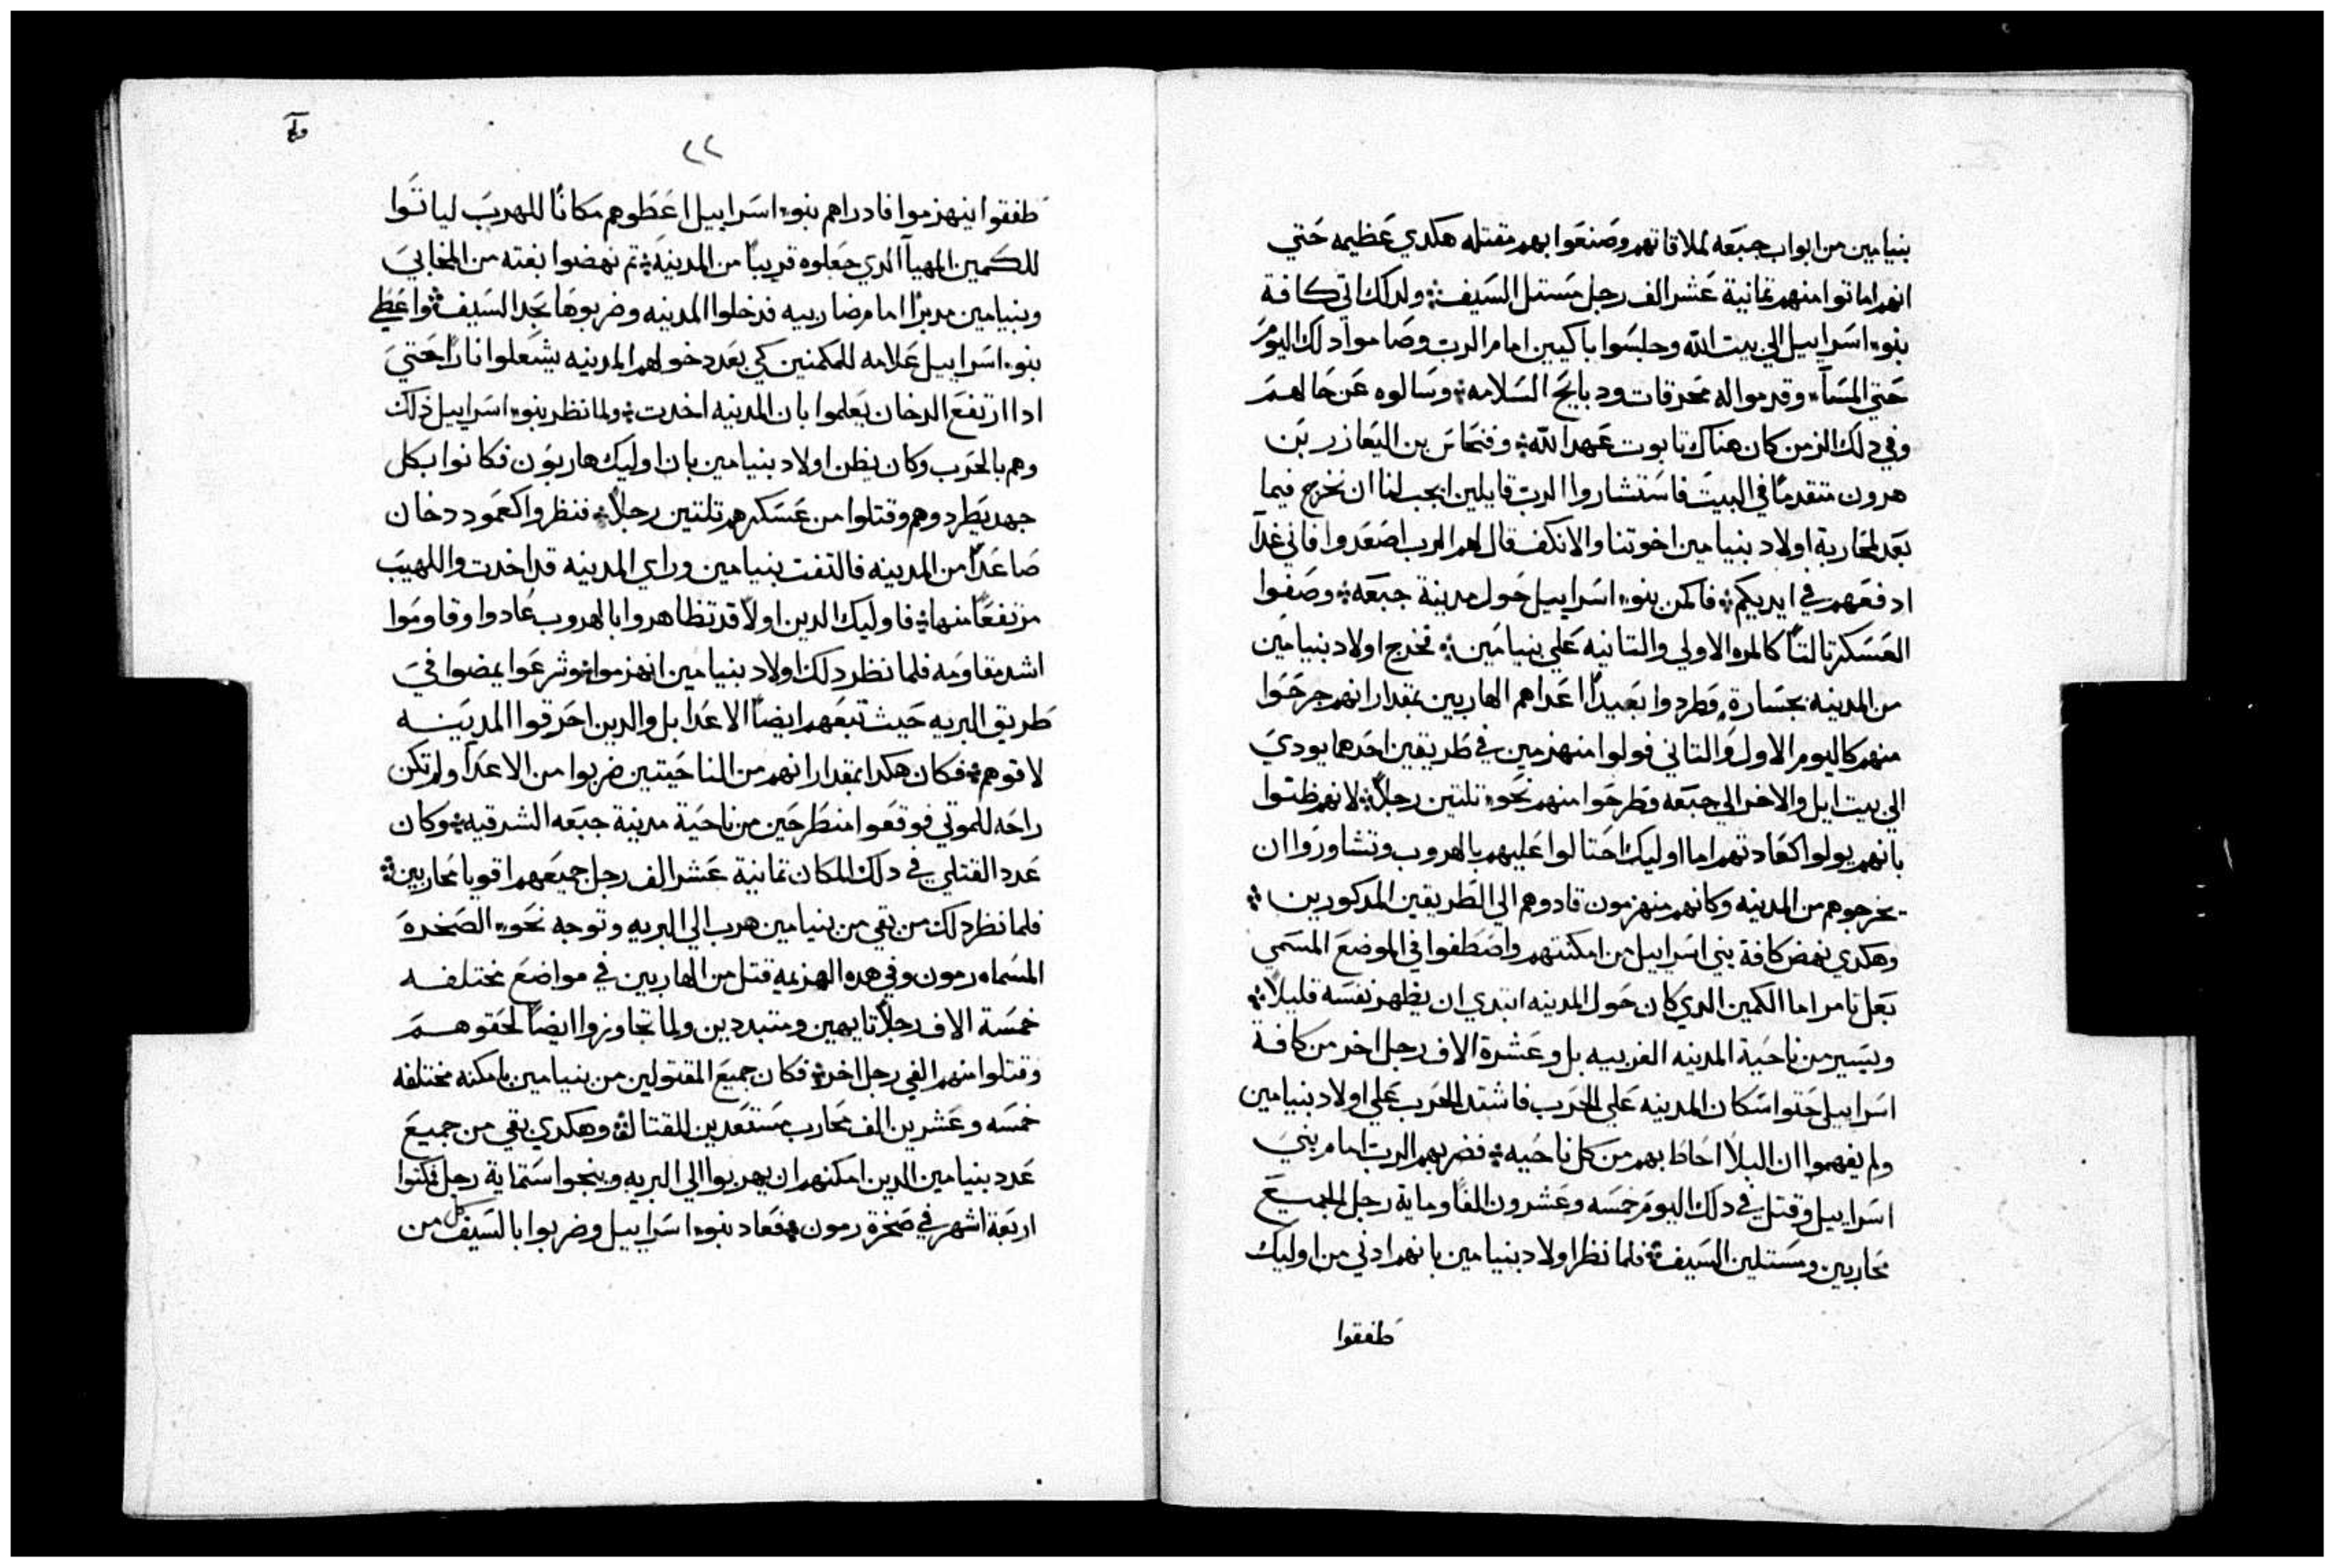 بنيامين من ابواب جبعه لملاقاتهم وصنعوا بهم مقتله هكدي عظيمه حتي
انهم اماتوا منهم تمانية عشر الف رجل مستل السيف ولدلك اتي كافة
بنو اسراييل الي بيت الله وجلسوا باكيين امام الرب وصاموا دلك اليوم
حتي المسآء وقدموا له محرقات ودبايح السلامه وسالوه عن حالهم
وفي دلك الزمن كان هناك تابوت عهد الله وفنحاس بن اليعازر بن
هرون متقدمًا في البيت فاستشاروا الرب قايلين ايجب لنا ان نخرج فيما
بعد لمحاربة اولاد بنيامين اخوتنا والا نكف قال لهم الرب اصعدوا فاني غدًا
ادفعهم في ايديكم فاكمن بنو اسراييل حول مدينة جبعه وصفوا
العسكر تالتًا كالمره الاولي والتانيه علي بنيامين فخرج اولاد بنيامين
من المدينه بجساره وطردوا بعيدًا اعداهم الهاربين بمقدار انهم جرحوا
منهم كاليوم الاول والتاني فولوا منهزمين في طريقين احدهما يودي
الي بيت ايل والاخر الي جبعه وطرحوا منهم نحو تلتين رجلًا لانهم ظنوا
بانهم يولوا كعادتهم اما اوليك احتالوا عليهم بالهروب وتشاوروا ان
يخرجوهم من المدينه وكانهم منهزمون قادوهم الي الطريقين المدكورين
وهكدي نهض كافة بني اسراييل من امكنتهم واصطفوا في الموضع المسمي
بعل تامر اما الكمين الدي كان حول المدينه ابتدي ان يظهر نفسه قليلًا
ويسير من ناحية المدينه الغربيه بل وعشرة الاف رجل اخر من كافة
اسراييل حتوا سكان المدينه علي الحرب فاشتد الحرب علي اولاد بنيامين
ولم يفهموا ان البلا احاط بهم من كل ناحيه فضربهم الرب امام بني
اسراييل وقتل في دلك اليوم خمسه وعشرون الفًا وماية رجل الجميع
محاربين ومستلين السيف فلما نظر اولاد بنيامين بانهم ادني من اوليك
طفقوا
٢٢
طفقوا ينهزموا فاد راهم بنو اسراييل اعطوهم مكانًا للهرب لياتوا
للكمين المهيآ الدي جعلوه قريبًا من المدينه تم نهضوا بغته من المخابي
وبنيامين مدبرًا امام ضاربيه فدخلوا المدينه وضربوها بحد السيف واعطي
بنو اسراييل علامه للمكمنين كي بعد دخولهم المدينه يشعلوا نارًا حتي
ادا ارتفع الدخان يعلموا بان المدينه اخدت ولما نظر بنو اسراييل ذلك
وهم بالحرب وكان يظن اولاد بنيامين بان اوليك هاربون فكانوا بكل
جهد يطردوهم وقتلوا من عسكرهم تلتين رجلًا فنظروا كعمود دخان
صاعدًا من المدينه فالتفت بنيامين وراي المدينه قد اخدت واللهيب
مرتفعًا منها فاوليك الدين اولًا قد تظاهروا بالهروب عادوا وقاوموا
اشد مقاومه فلما نظر دلك اولاد بنيامين انهزموا وشرعوا يمضوا في
طريق البريه حيث تبعهم ايضًا الاعدا بل والدين احرقوا المدينه
لاقوهم فكان هكدا بمقدار انهم من الناحيتين ضربوا من الاعدآ ولم تكن
راحه للموتي فوقعوا منطرحين من ناحية مدينة جبعه الشرقيه وكان
عدد القتلي في دلك المكان تمانية عشر الف رجل جميعهم اقويا محاربين
فلما نظر دلك من بقي من بنيامين هرب الي البريه وتوجه نحو الصخره
المسماه رمون وفي هده الهزيمه قتل من الهاربين في مواضع مختلفه
خمسة الاف رجلًا تايهين ومتبددين ولما تجاوزوا ايضًا لحقوهم
وقتلوا منهم الفي رجل اخر فكان جميع المقتولين من بنيامين بامكنه مختلفه
خمسه وعشرين الف محارب مستعدين للقتال وهكدي بقي من جميع
عدد بنيامين الدين امكنهم ان يهربوا الي البريه وينجوا ستماية رجل فمكتوا
اربعة اشهر في صخرة رمون فعاد بنو اسراييل وضربوا بالسيف كل من